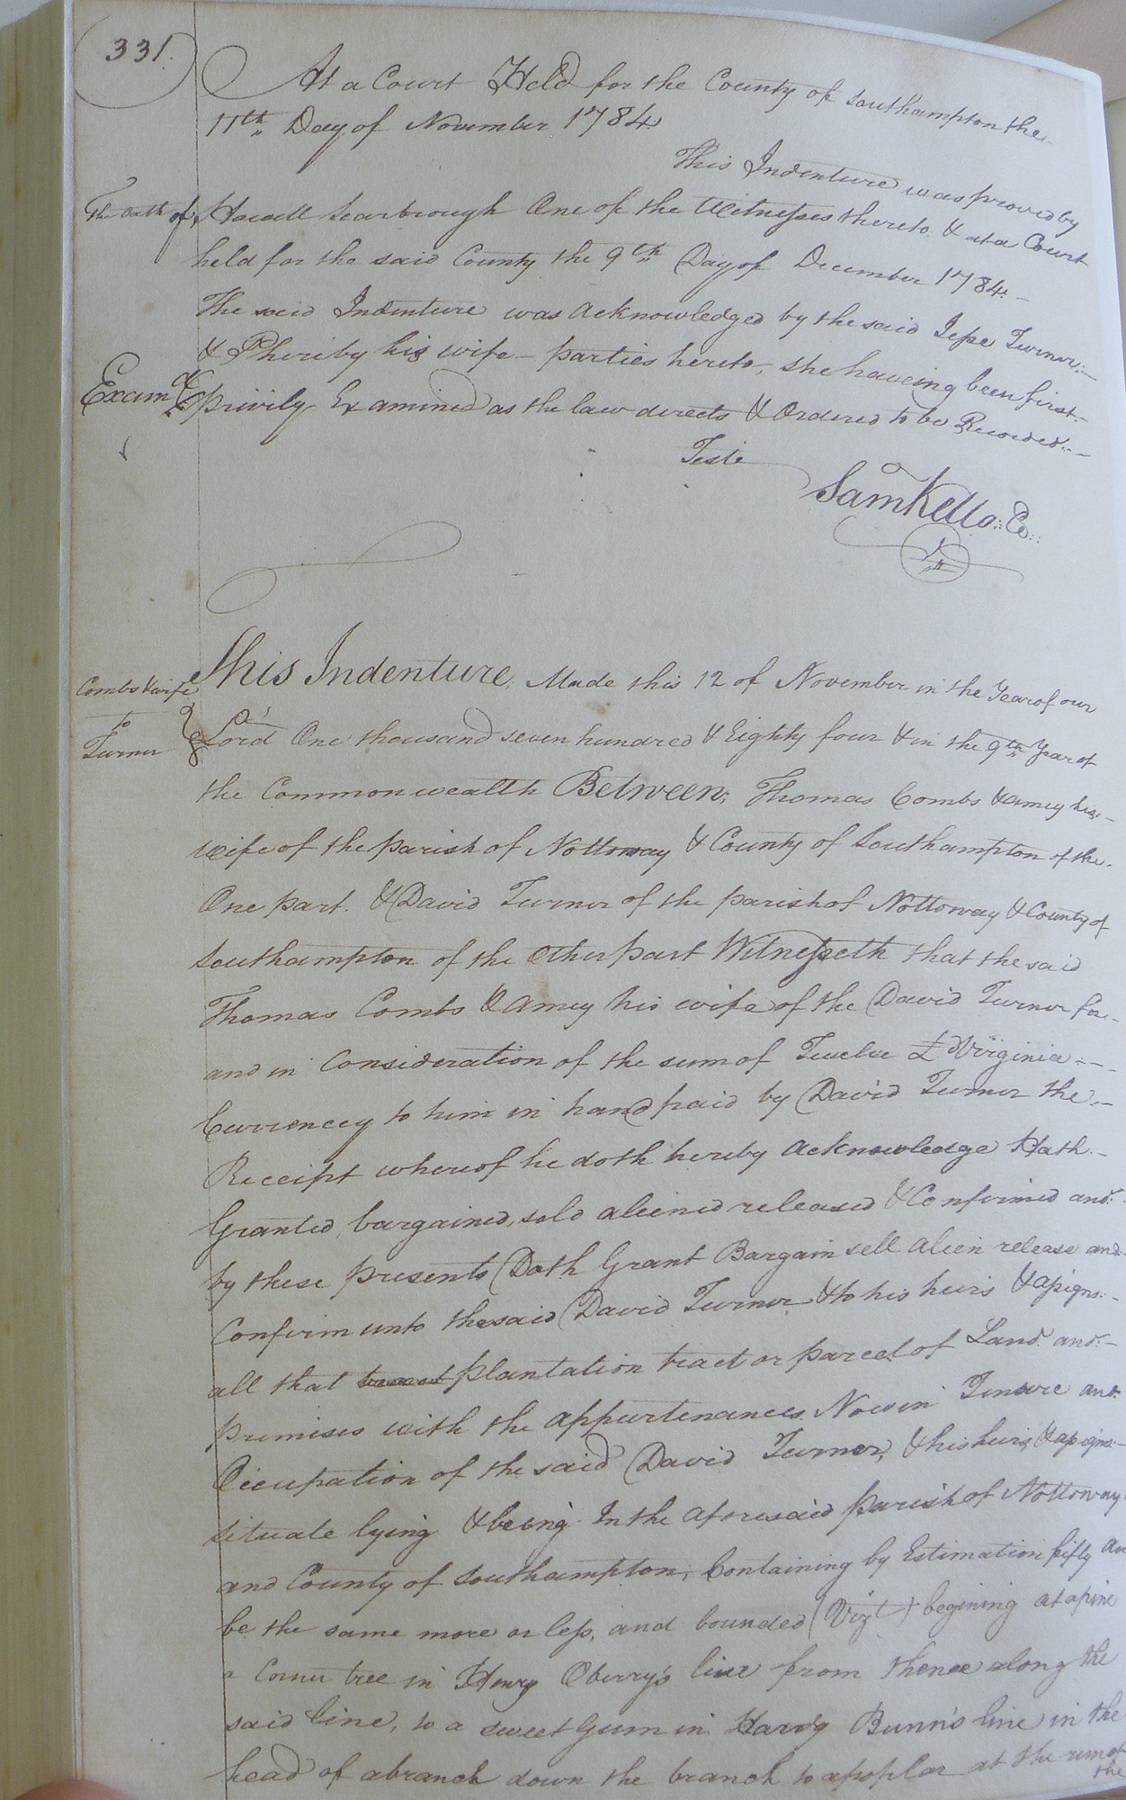 331.
At a Court Held for the County of Southampton the
11th Day of November 1784
This Indenture was proved by
The Oath of Howell Scarbrough One of the Witnesses thereto & at a Court
held for the said County the 9th Day of December 1784.
The said Indenture was Acknowledged by the said Jesse Turner
& Pheriby his wife parties hereto, she haveing been first
Examd privily Examined as the law directs & Ordered to be Recorded.
Teste
Sam Kello. Co
Combs & wife
to
Turner
This Indenture, Made this 12 of November in the Year of our
Lord One thousand seven hundred & Eighty four & in the 9th Year of
the Commonwealth Between, Thomas Combs & Amey his
wife of the parish of Nottoway & County of Southampton of the
One part. & David Turner of the parish of Nottoway & County of
Southampton of the Other part Witnesseth that the said
Thomas Combs & Amey his wife of the David Turner for
and in Consideration of the sum of Twelve £ Virginia
Currencey to him in hand paid by David Turner the
Receipt whereof he doth hereby Acknowledge Hath
Granted, bargained, sold aliened released & Confirmed and
by these presents Doth Grant Bargain sell alien release and
Confirm unto the said David Turner & to his heirs & assigns
all that plantation tract or parcel of Land and
premises with the appurtenances Now in Tenure and
Occupation of the said David Turner, & his heirs & assigns
situate lying & being In the Aforesaid parish of Nottoway
and County of Southampton, Containing by Estimation fifty
be the same more or less, and bounded (Vizt) begining at a pine
a Corner tree in Henry Oberry's line from thence along the
said line, to a sweet Gum in Hardy Bunn's line in the
head of a branch down the branch to a poplar at the run of
the